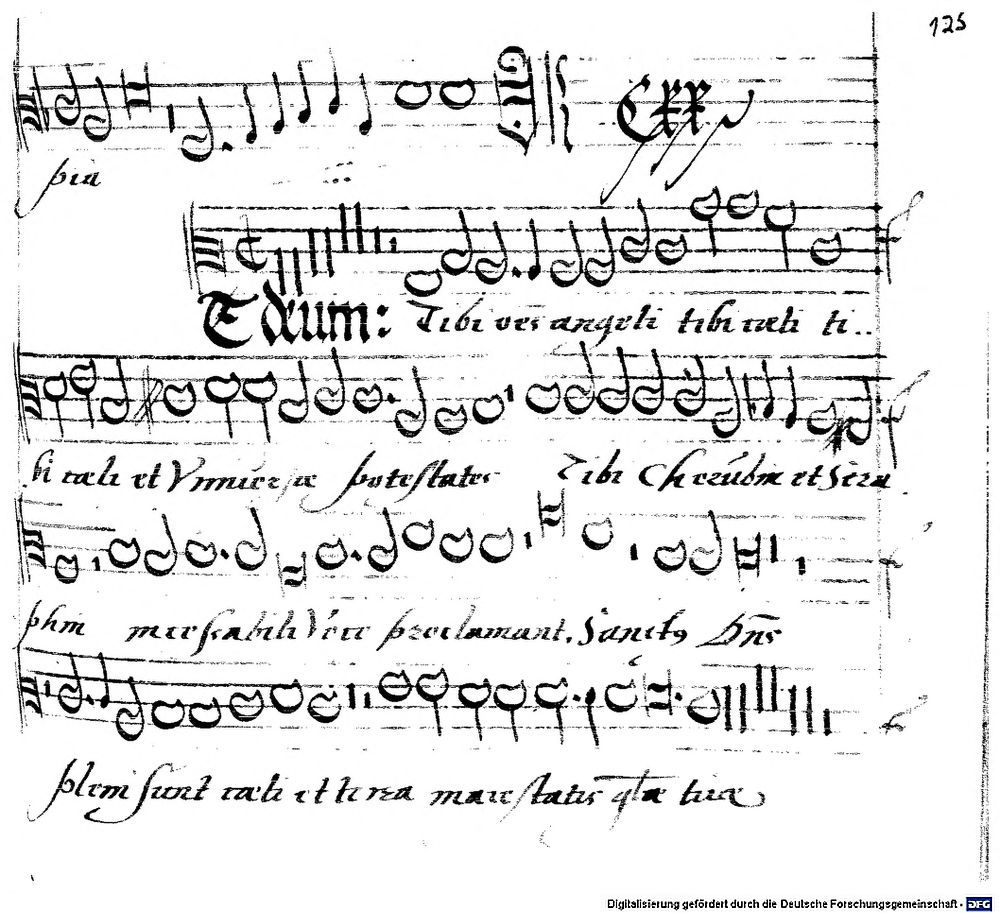 125
CXX
pia
Te deum: Tibi oēs angeli tibi cæli ti..
bi cæli et Vniuersæ potestates Tibi Cherubin et Sera
phin incessabili Voce proclamant. Sanctꝯ Dn̄s
pleni sunt cæli et terra maiestatis glæ tuæ
Digitalisierung gefördert durch die Deutsche Forschungsgemeinschaft - DFG